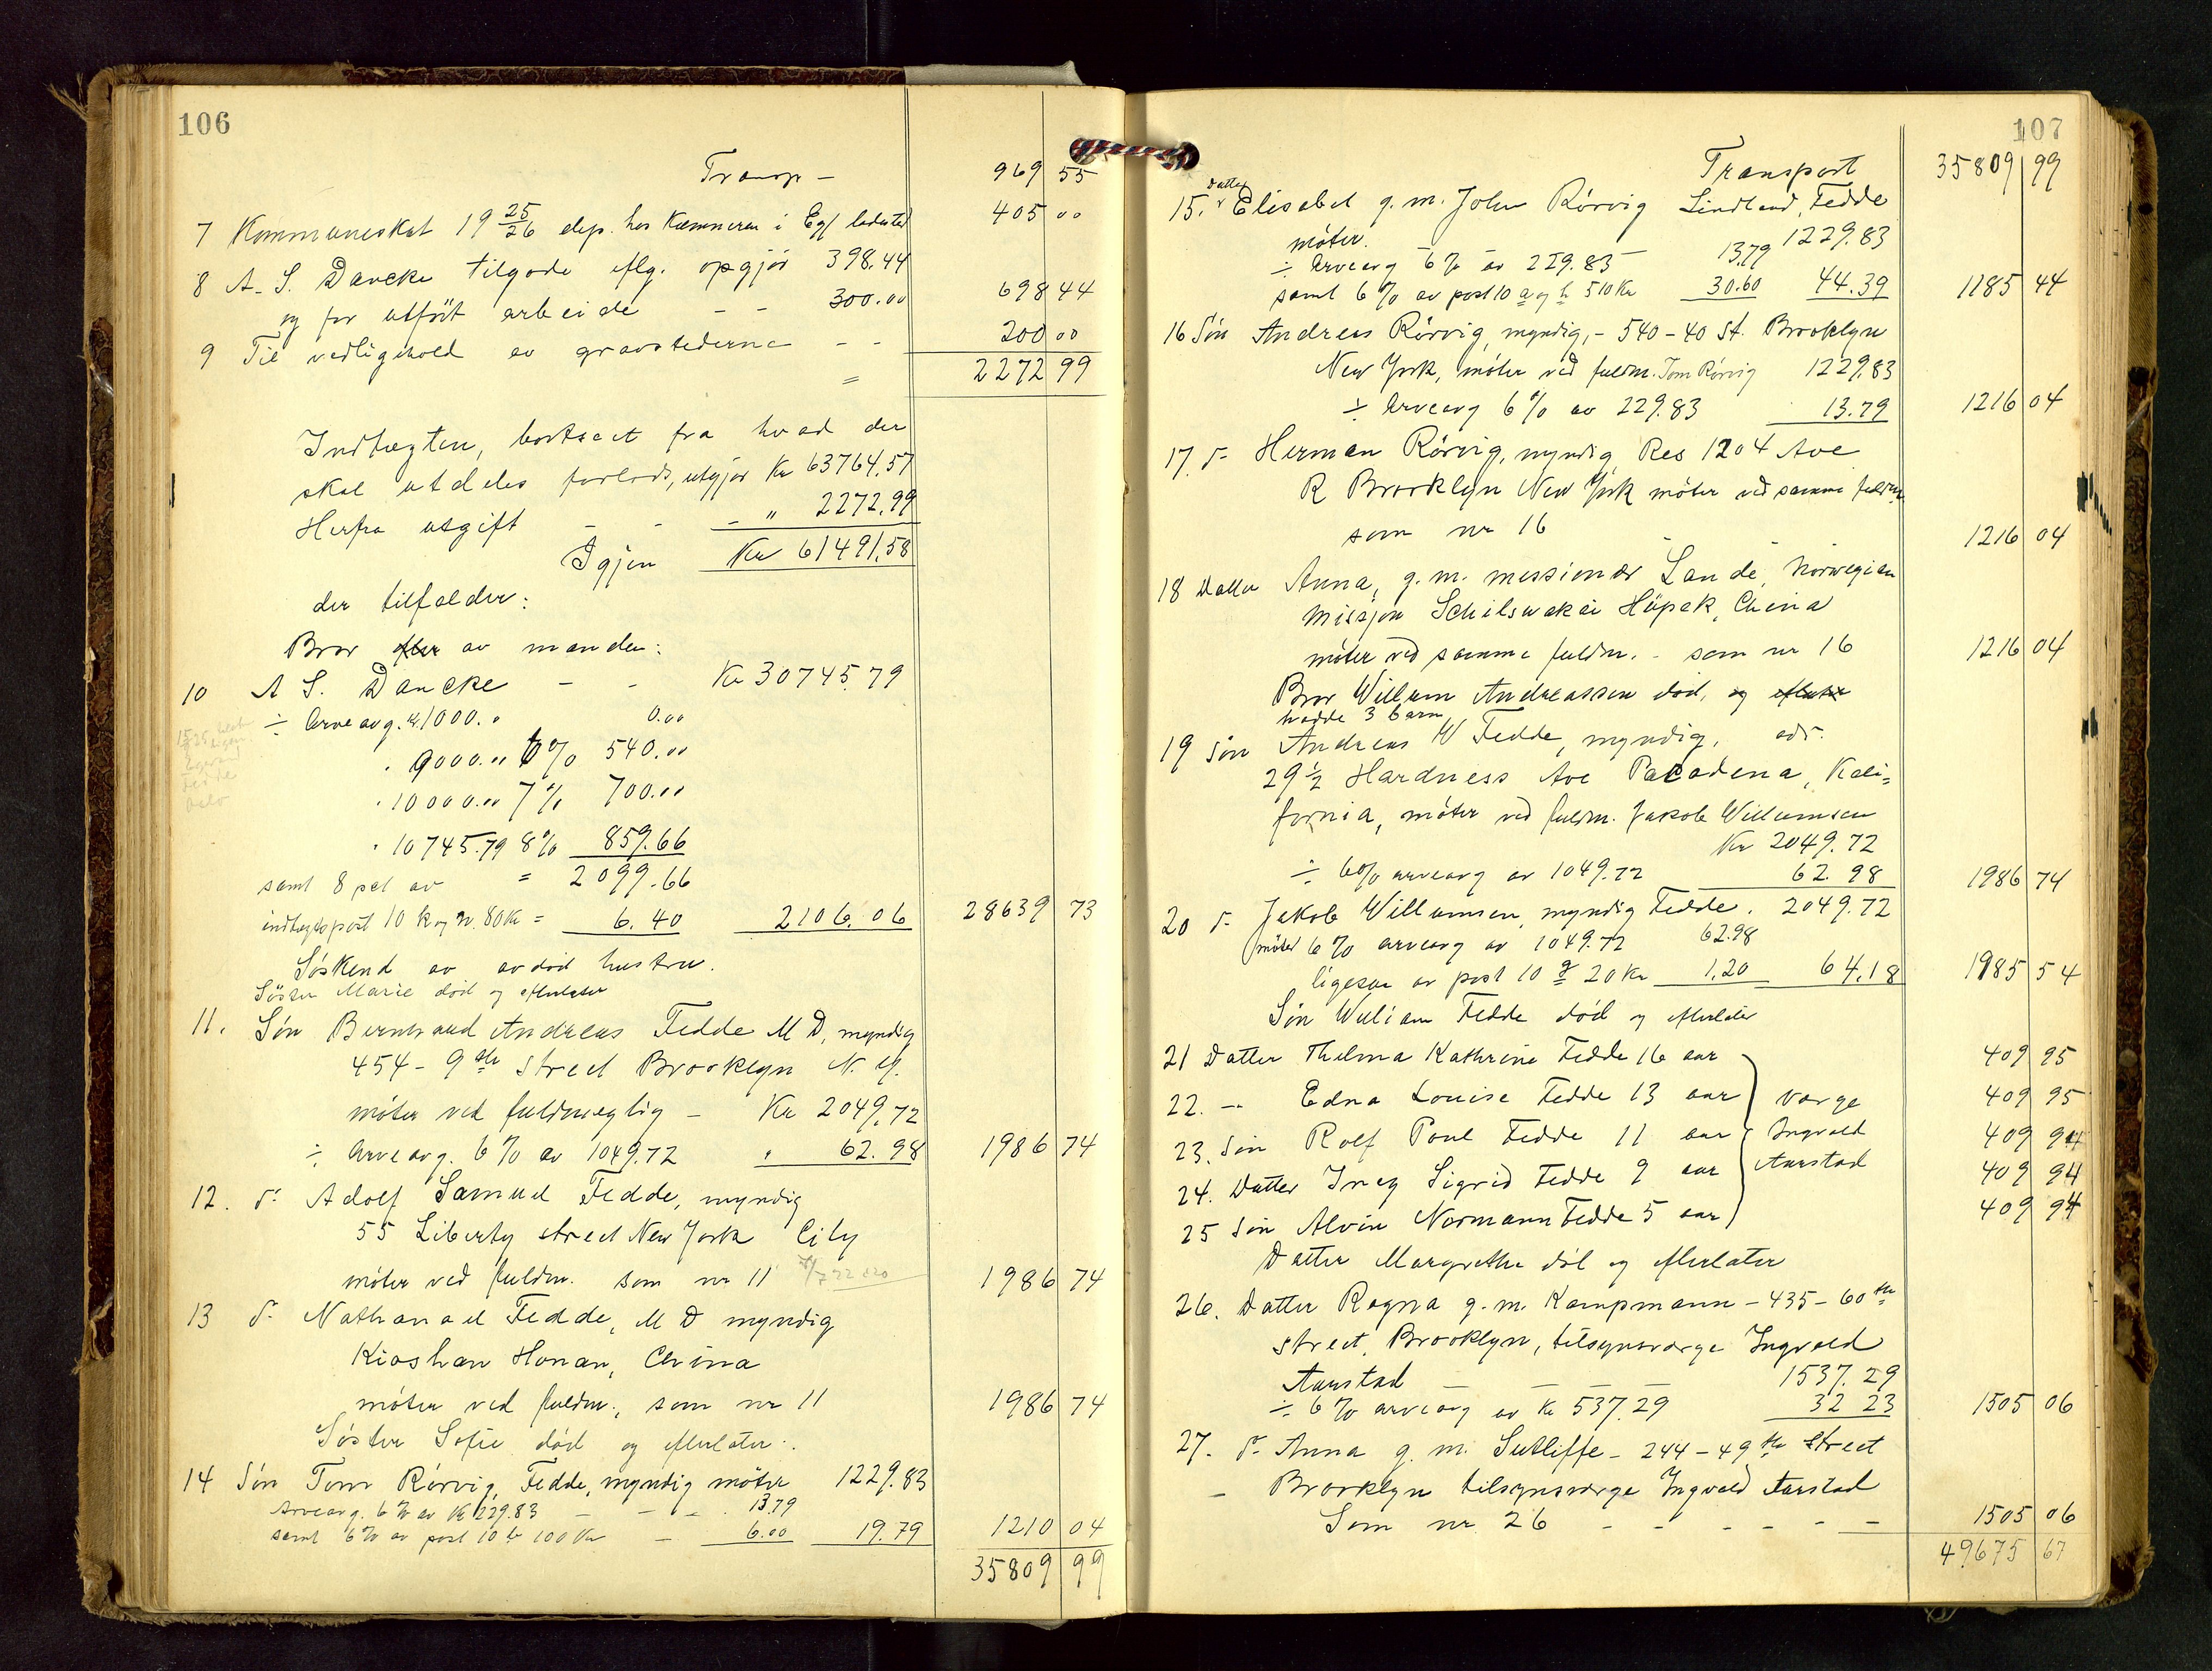 106
Transp - 969 55
7 Kommuneskat 19 25/26 dep. hos Kæmneren i Eg/ ladested 405 00
8 A. S. Dancke tilgode eflg. opgjör 398.44
og for utfört arbeide - - 300.00 698 44
9 Til vedligehold av gravstederne - - 200 00
= 2272 99
Indtægten, bortseet fra hvad der
skal utdeles forlods, utgjör Kr 63764,57
Herfra utgift - - - " 2272,99
Igjen Kr 61491,58
der tilfalder:
Bror efter av manden:
10 A S. Dancke - - Kr 30745.79
÷ Arveavg. av 1000. " 0.00
" 9000.00 6% 540.00
" 10000.00 7% 700.00
" 10745.79 8% 859.66
samt 8 pct av = 2099.66
indtægtspost 10 k og n. 80 Kr = 6.40 2106.06 28639 73
Söskend av avdöd hustru.
Söster Marie död og efterlater
11. Sön Bernhard Andreas Fedde M D, myndig
454 - 9 the street Brooklyn N. Y.
möter ved fuldmegtig - Kr 2049,72
÷ Arveavg. 6% av 1049.72 " 62.98 1986 74
12. d° Adolf Samuel Fedde, myndig
55 Liberty street New York City
möter ved fuldm. som nr 11 1986 74
13 d° Nathanael Fedde, M D myndig
Kioshan Honan, China
möter ved fuldm., som nr 11 1986 74
Söster Sofie död og efterlater:
14 Sön Tom Rörvig, Fedde, myndig möter 1229.83
Arveavg. 6% av Kr 229.83 - - - 13.79
samt 6% av post 10 b 100 Kr - 6.00 19.79 1210 04
35809 99
107
Transport 35809 99
15. Datter Elisabet g. m. John Rörvig Lindland, Fedde
möter. 1229.83
÷ Arveavg 6% av 229.83 - 13.79
samt 6% av post 10 a og h 510 Kr 30.60 44.39 1185 44
16 Sön Andreas Rörvig, myndig, - 540 - 40 St. Brooklyn
New York, möter ved fuldm. Tom Rörvig 1229.83
÷ Arveavg 6% av 229.83 13.79 1216 04
17. d° Herman Rörvig, myndig Res 1204 Ave
R Brooklyn New York möter ved samme fuldm.
som nr 16 1216 04
18 Datter Anna, g. m. missionær Lande, Norwegian
Missjon Schilswakai Hüpak, China
möter ved samme fuldm. - som nr 16 1216 04
Bror Willum Andreassen död, og efterlater
hadde 3 barn
19 Sön Andreas W Fedde, myndig, adr.
29 1/2 Hardness Ave Pacadena, Kali=
fornia, möter ved fuldm. Jakob Willumsen
Kr 2049.72
÷ 6% arveavg av 1049.72 62.98 1986 74
20 d° Jakob Willumsen, myndig Fedde. 2049.72
möter 6% arveavg av 1049.72 62.98
ligesaa av post 10 g 20 Kr 1,20 64.18 1985 54
Sön William Fedde död og efterlater
21 Datter Thelma Kathrine Fedde 16 aar 409 95
22. -" Edna Louise Fedde 13 aar værge 409 95
23. Sön Rolf Poul Fedde 11 aar Ingvald 409 94
24. Datter Inez Sigrid Fedde 9 aar Aarstad 409 94
25 Sön Alvin Normann Fedde 5 aar 409 94
Datter Margrethe död og efterlater
26. Datter Ragna g. m. Kampmann - 435 - 60 the
street, Brooklyn, tilsynsværge Ingvald
Aarstad - - - 1537.29
÷ 6% arveavg av Kr 537.29 32 23 1505 06
27. d° Anna g. m. Sutliffe - 244 - 49 the street
- Brooklyn tilsynsværge Ingvald Aarstad
Som nr. 26 - - - - - - 1505 06
49675 67